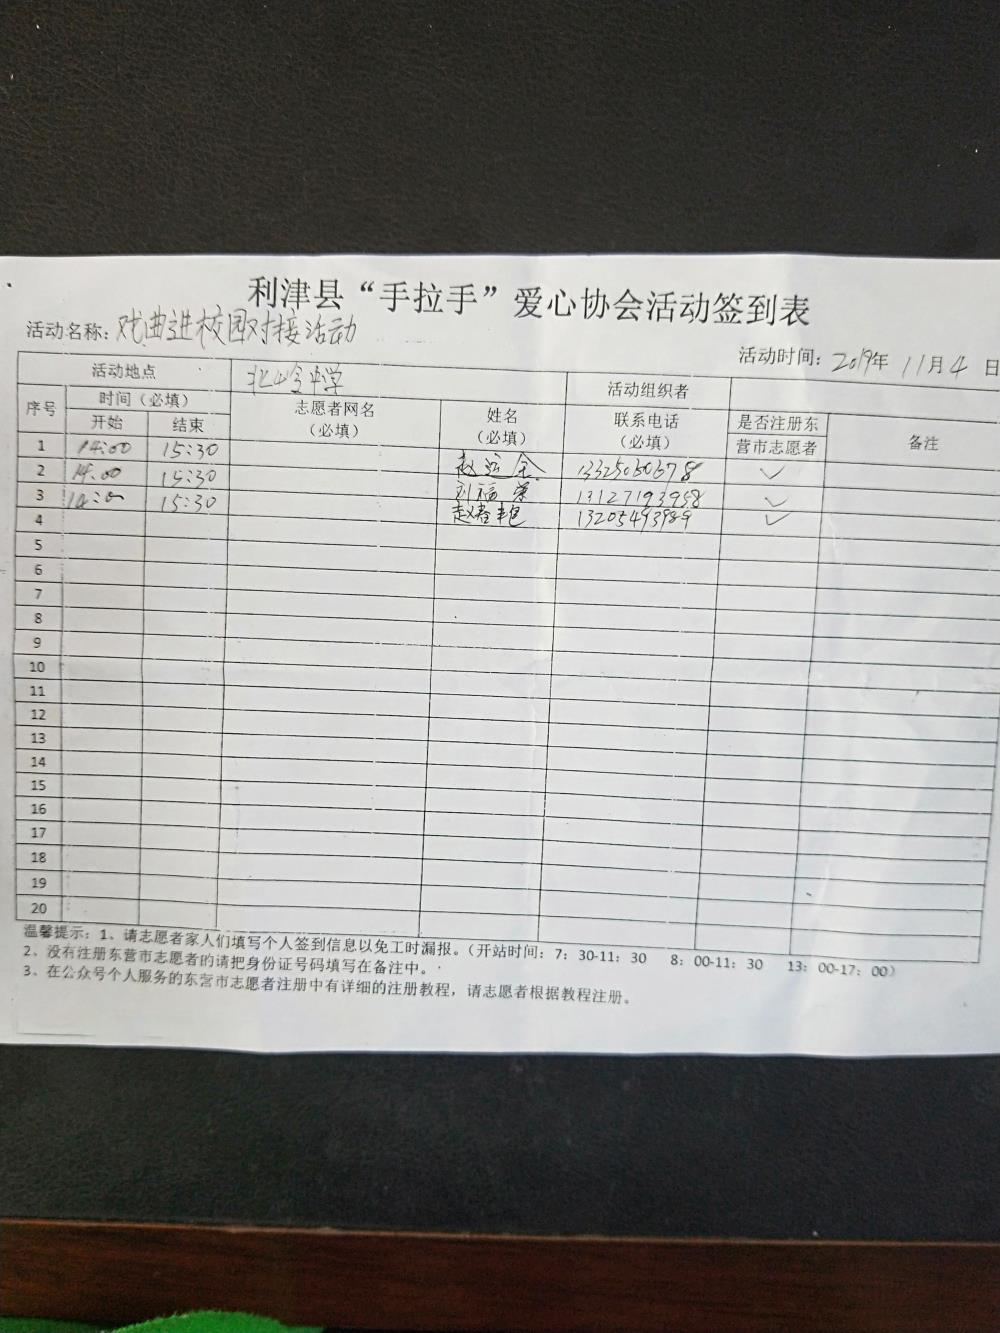 利津县“手拉手”爱心协会活动签到表
活动名称：戏曲进校园对接活动
活动时间：2019年 11月 4 日
活动地点 北岭中学 活动组织者
序号 时间（必填） 志愿者网名（必填） 姓名（必填） 联系电话（必填） 是否注册东营市志愿者 备注
开始 结束
1 14:00 15:30 赵运全 13325050678 ✓
2 14:00 15:30 刘福荣 13127193958 ✓
3 14:00 15:30 赵春 13205493989 ✓
4
5
6
7
8
9
10
11
12
13
14
15
16
17
18
19
20
温馨提示：1、请志愿者家人们填写个人签到信息以免工时漏报。（开站时间：7：30-11：30 8：00-11：30 13：00-17：00）
2、没有注册东营市志愿者的请把身份证号码填写在备注中。
3、在公众号个人服务的东营市志愿者注册中有详细的注册教程，请志愿者根据教程注册。